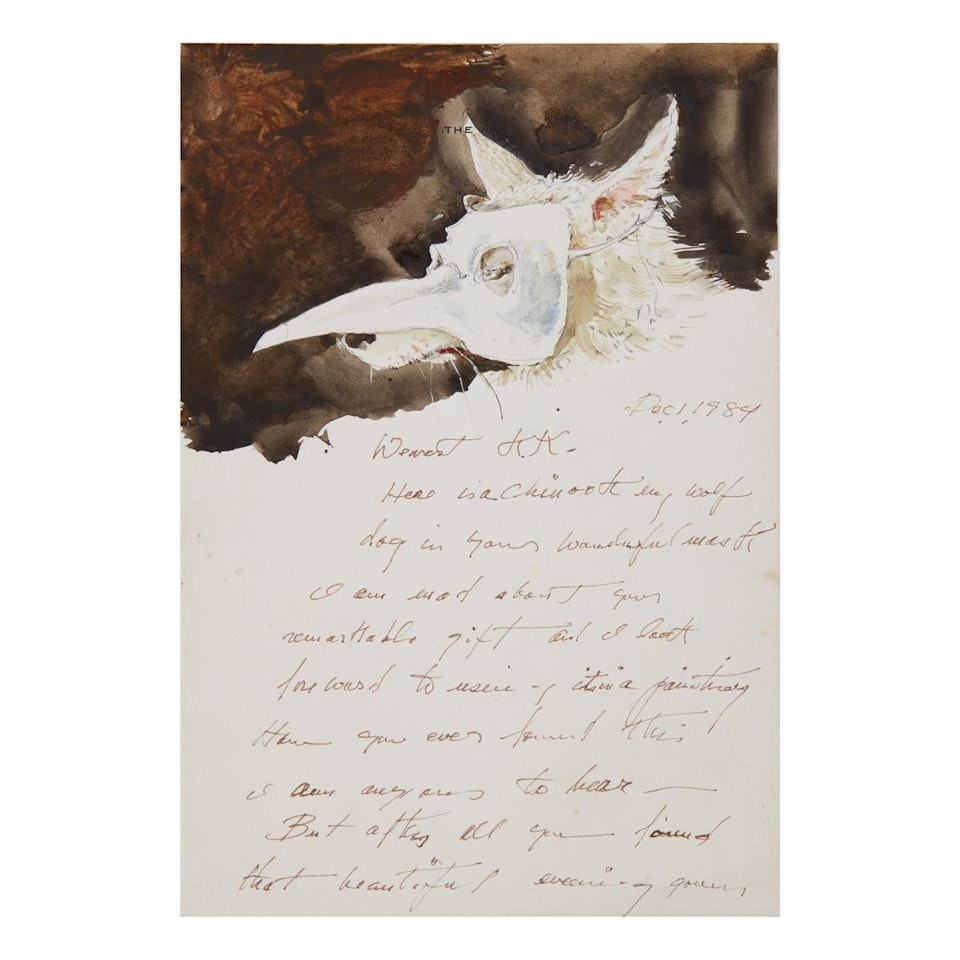 THE
Dec. 1, 1984
Dearest K.K.
Here is a Chinook my wolf
dog in your wonderful mask
I am mad about your
remarkable gift and I look
forward to useing it in a painting
How you ever found this
I am anxious to hear —
But after all you found
that beautiful eveing gown